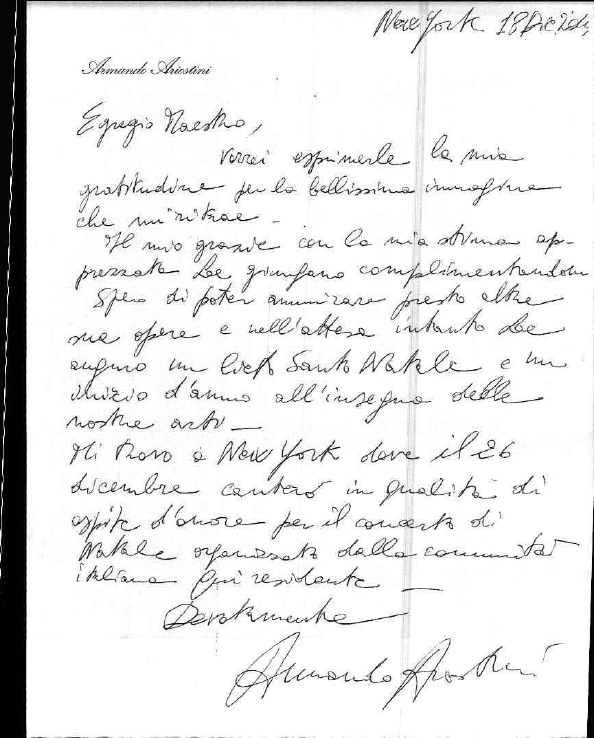 New York 18 Dic
Armando Ariostini
Egregio Maestro,
Vorrei esprimerle la mia
gratitudine per la bellissima immagine
che mi ritrae -
Il mio grazie con la mia stima ap-
prezzata Le giungano complimentandomi
Spero di poter ammirare presto altre
sue opere e nell'attesa intanto Le
auguro un lieto Santo Natale e un
inizio d'anno all'insegna delle
nostre arti -
Mi trovo a New York dove il 26
dicembre canterò in qualità di
ospite d'onore per il concerto di
Natale organizzato dalla comunità
italiana qui residente -
Devotamente
Armando Ariostini